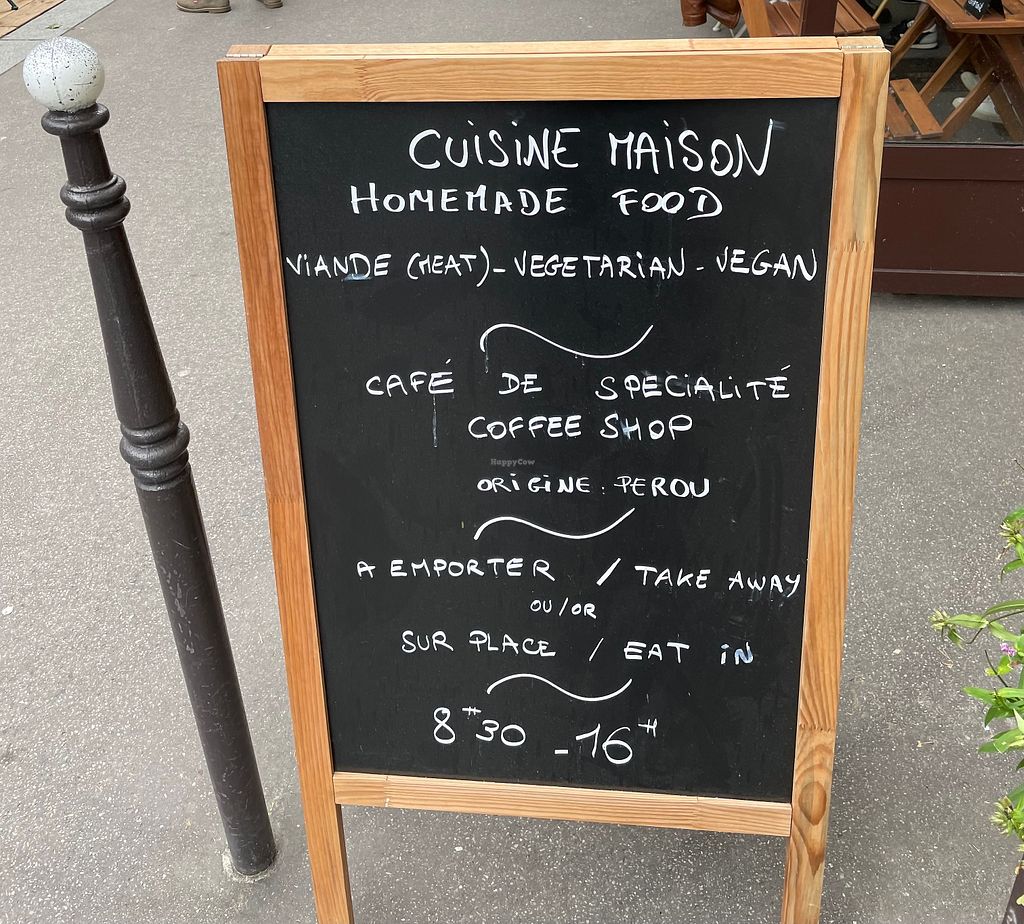 CUISINE MAISON
HOMEMADE FOOD
VIANDE (MEAT) - VEGETARIAN - VEGAN
CAFÉ DE SPECIALITÉ
COFFEE SHOP
HappyCow
ORIGINE : PEROU
A EMPORTER / TAKE AWAY
OU/OR
SUR PLACE / EAT IN
8H30 - 16H